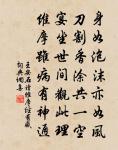 身如泡沫亦如風
刀割香塗共一空
宴坐世間觀此理
維摩雖病有神通
王安石詩讀維摩經有感